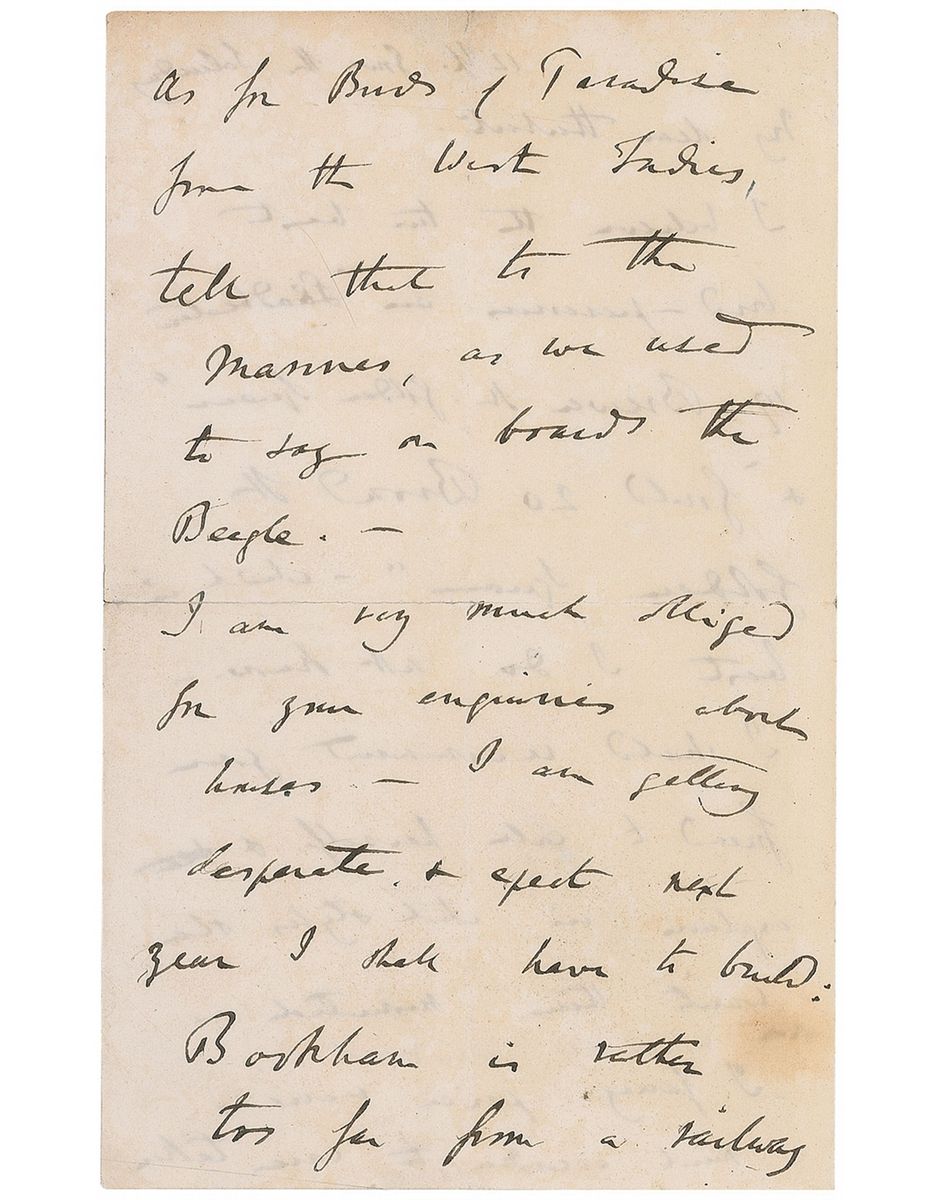 As for Birds of Paradise
from the West Indies,
tell that to the
Marines, as we used
to say on boards the
Beagle. —
I am very much obliged
for your enquiries about
houses — I am getting
desperate & expect next
year I shall have to build.
Bookham is rather
too far from a railway